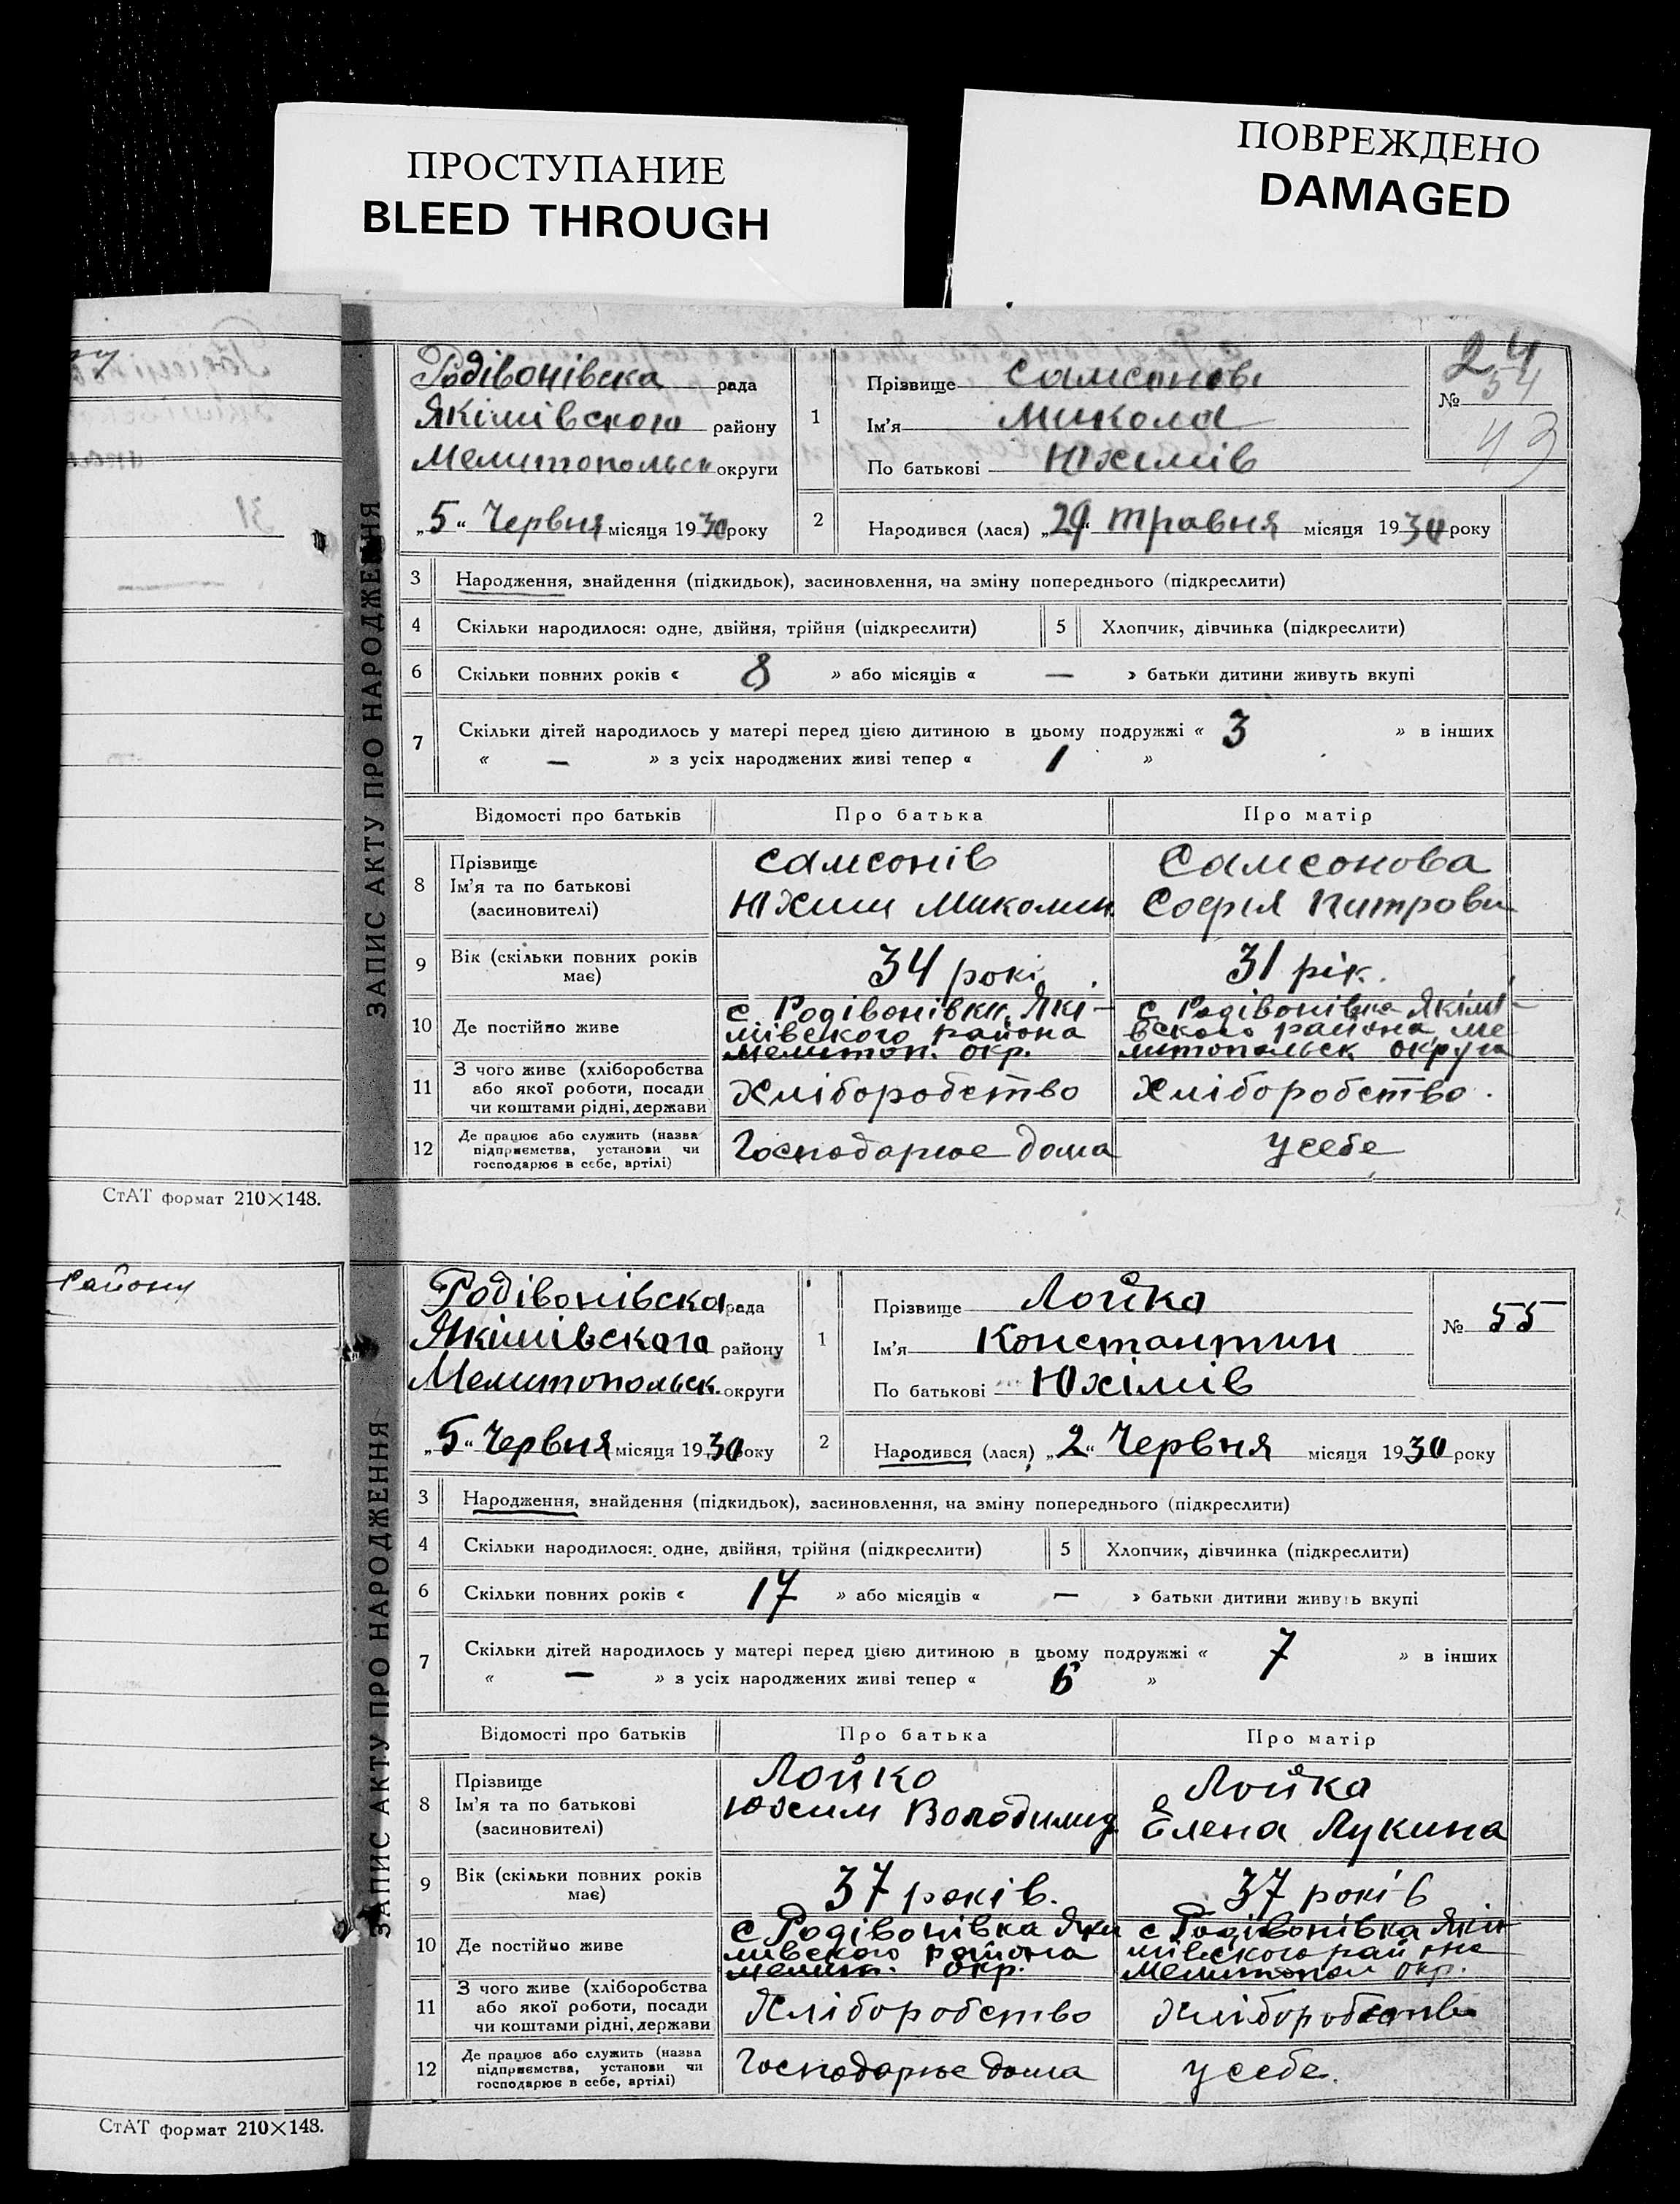 ПРОСТУПАНИЕ
BLEED THROUGH
ПОВРЕЖДЕНО
DAMAGED
ЗАПИС АКТУ ПРО НАРОДЖЕННЯ
Родівонівска рада
Якімівского району
Мелитопольск округи
„5“ Червня місяця 1930 року
1
Прізвище Самсонов
Ім'я Микола
По батькові Юхимів
24
№ 54
43
2
Народився (лася) „29“ травня місяця 1930 року
3 Народження, знайдення (підкидьок), засиновлення, на зміну попереднього (підкреслити)
4 Скільки народилося: одне, двійня, трійня (підкреслити) 5 Хлопчик, дівчинка (підкреслити)
6 Скільки повних років « 8 » або місяців « — » батьки дитини живуть вкупі
7 Скільки дітей народилось у матері перед цією дитиною в цьому подружжі « 3 » в інших
« — » з усіх народжених живі тепер « 1 »
Відомості про батьків Про батька Про матір
8 Прізвище
Ім'я та по батькові
(засиновителі)
Самсонів
Юхим Миколин
Самсонова
Софія Питрови
9 Вік (скільки повних років
має)
34 рокі
31 рік.
10 Де постійно живе
с. Родівонівки Які-
мівского района
мелитоп. окр.
с Родівонівка Якімі-
вского района, ме
литопольск округа
11 З чого живе (хліборобства
або якої роботи, посади
чи коштами рідні, держави
Хліборобство
Хліборобство.
12 Де працює або служить (назва
підприємства, установи чи
господарює в себе, артілі)
Господарює дома
у себе
СтАТ формат 210×148.
району
ЗАПИС АКТУ ПРО НАРОДЖЕННЯ
Родівонівска рада
Якімівского району
Мелитопольск. округи
„5“ Червня місяця 1930 року
1
Прізвище Лойко
Ім'я Константин
По батькові Юхімів
№ 55
2
Народився (лася) „2“ Червня місяця 1930 року
3 Народження, знайдення (підкидьок), засиновлення, на зміну попереднього (підкреслити)
4 Скільки народилося: одне, двійня, трійня (підкреслити) 5 Хлопчик, дівчинка (підкреслити)
6 Скільки повних років « 17 » або місяців « — » батьки дитини живуть вкупі
7 Скільки дітей народилось у матері перед цією дитиною в цьому подружжі « 7 » в інших
« — » з усіх народжених живі тепер « 6 »
Відомості про батьків Про батька Про матір
8 Прізвище
Ім'я та по батькові
(засиновителі)
Лойко
Юхим Володимир
Лойка
Елена Лукина
9 Вік (скільки повних років
має)
37 років.
37 років
10 Де постійно живе
с Родівонівка Яки
мівского района
мелит. окр.
с Родівонівка Якім
мівского района
Мелитопол окр.
11 З чого живе (хліборобства
або якої роботи, посади
чи коштами рідні, держави
Хліборобство
Хліборобство
12 Де працює або служить (назва
підприємства, установи чи
господарює в себе, артілі)
Господарює дома
у себе.
СтАТ формат 210×148.